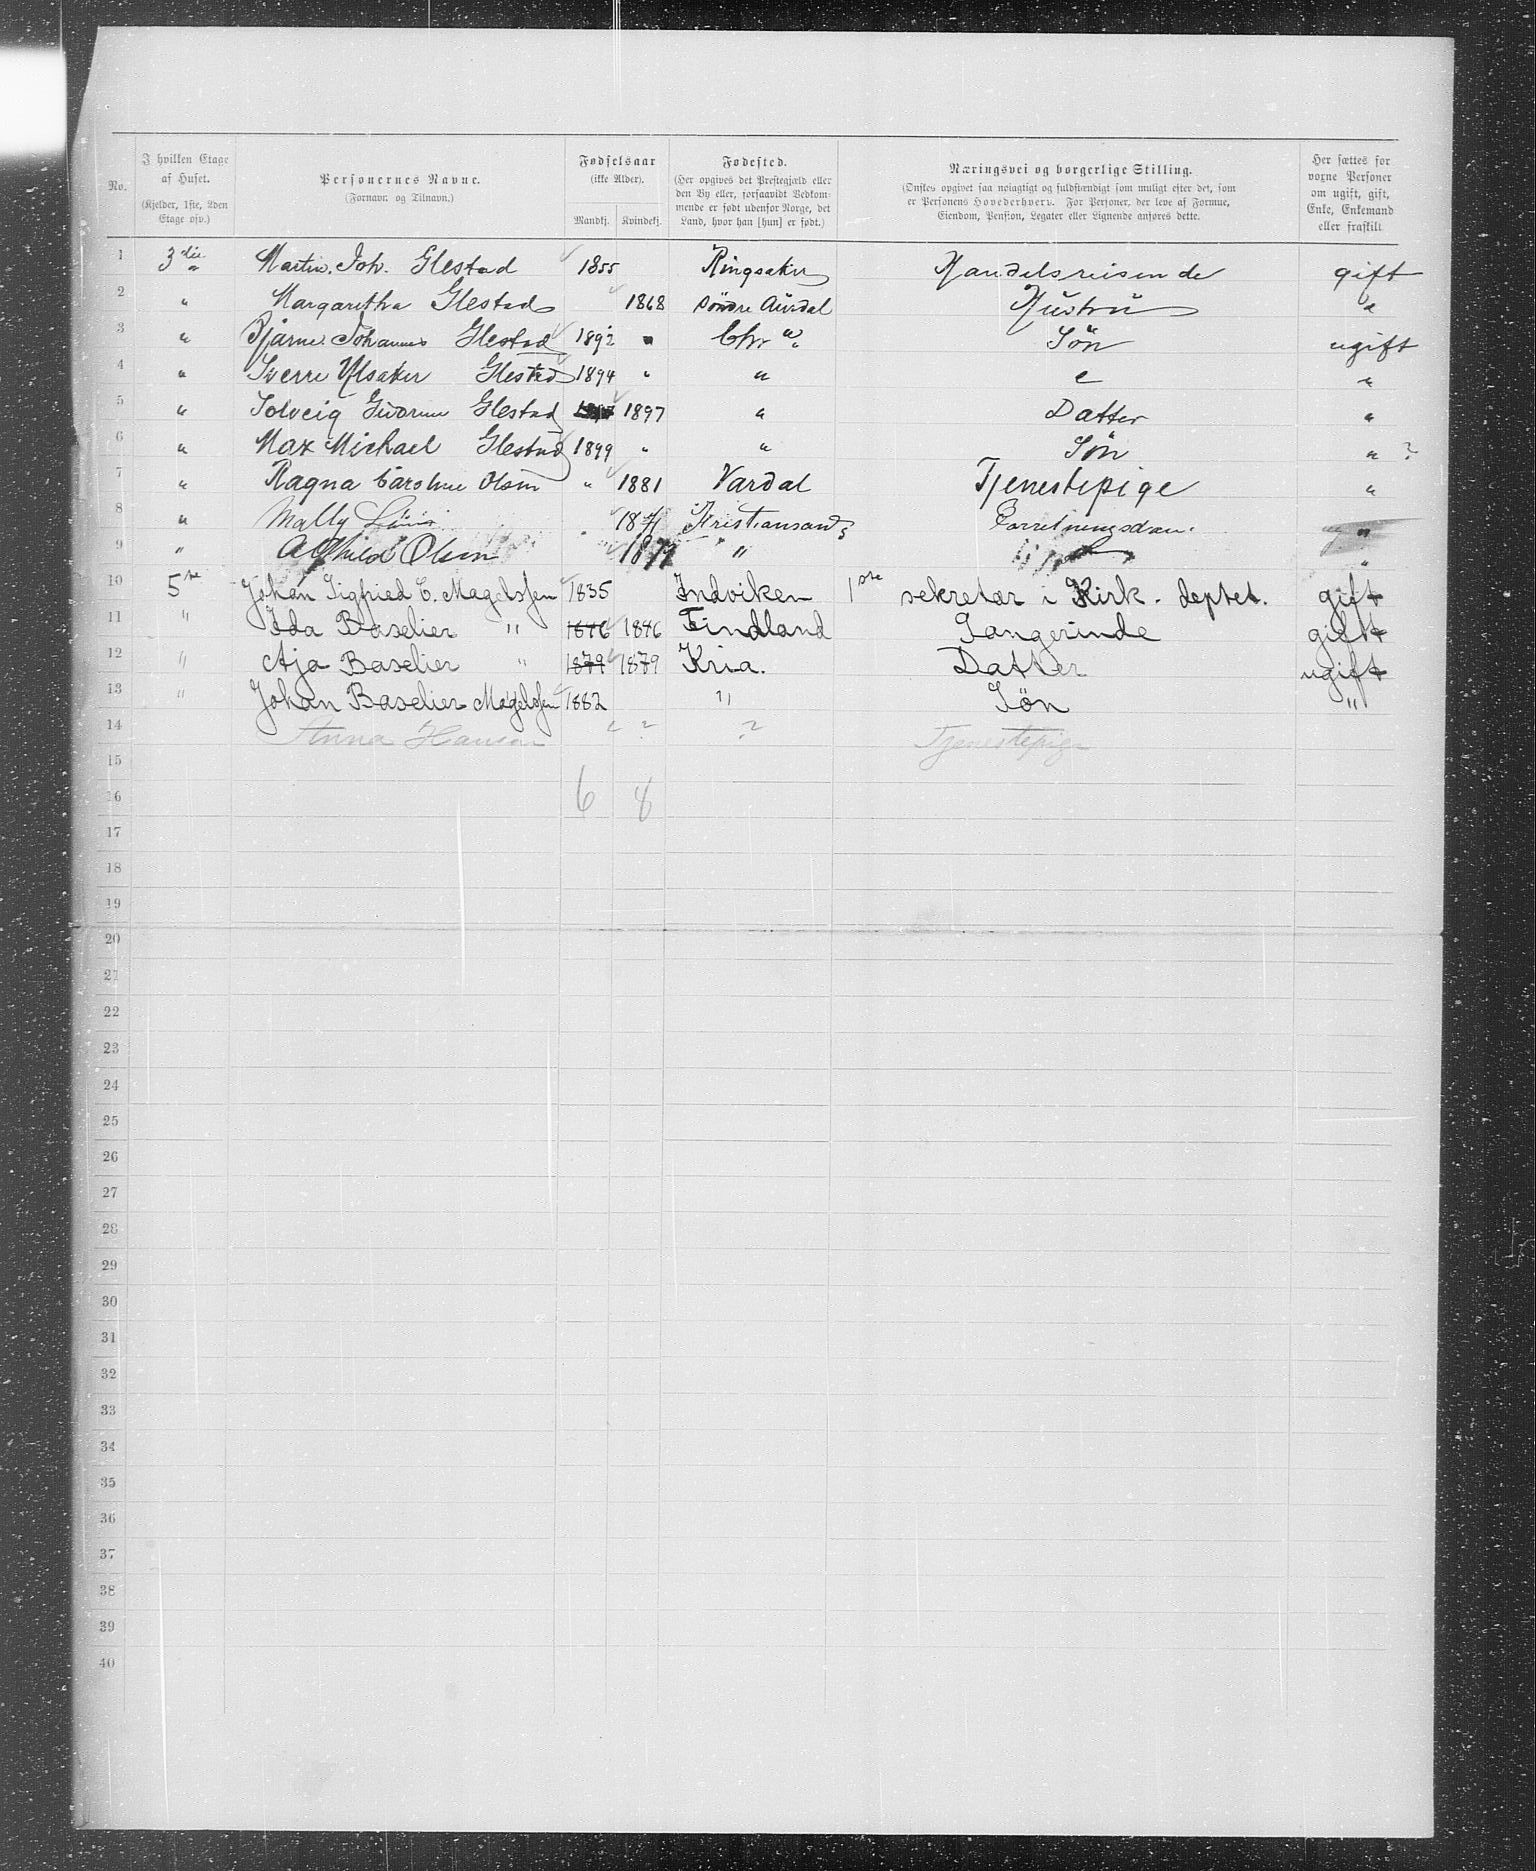 No.
I hvilken Etage af Huset.
(Kjelder, 1ste, 2den Etage osv.)
Personernes Navne.
(Fornavn og Tilnavn.)
Fødselsaar
(ikke Alder).
Mandkj. Kvindekj.
Fødested.
(Her opgives det Prestegjæld eller
den By eller, forsaavidt Vedkom-
mende er født udenfor Norge, det
Land, hvor han [hun] er født.)
Næringsvei og borgerlige Stilling.
(Ønskes opgivet saa nøiagtigt og fuldstændigt som muligt efter det, som
er Personens Hovederhverv. For Personer, der leve af Formue,
Eiendom, Pension, Legater eller Lignende anføres dette.
Her sættes for
voxne Personer
om ugift, gift,
Enke, Enkemand
eller fraskilt
1 3die Martin. Joh. Glestad 1855 Ringsaker Handelsreisende gift
2 " Margaretha Glestad 1868 Söndre Aurdal Hustru "
3 " Bjarne Johannes Glestad 1892 " Chr a Sön ugift
4 " Sverre Ulsaker Glestad 1894 " " " "
5 " Solveig Gudrun Glestad 1897 " Datter "
6 " Max Michael Glestad 1899 " " Sön " ?
7 " Ragna Caroline Olsen " 1881 Vardal Tjenestepige "
8 " Mally Kristiansand "
9 " Olsen 1877 " "
10 5te Johan Sigfried C. Magelssen 1835 Indviken 1ste sekretær i Kirk. deptet. gift
11 " Ida Baselier " 1846 1846 Findland Sangerinde gift
12 " Aja Baselier " 1879 1879 Kria. Datter ugift
13 " Johan Baselier Magelssen 1882 " Søn "
14 Anna Hansen " ? ? Tjenestepige
15
16 6 8
17
18
19
20
21
22
23
24
25
26
27
28
29
30
31
32
33
34
35
36
37
38
39
40